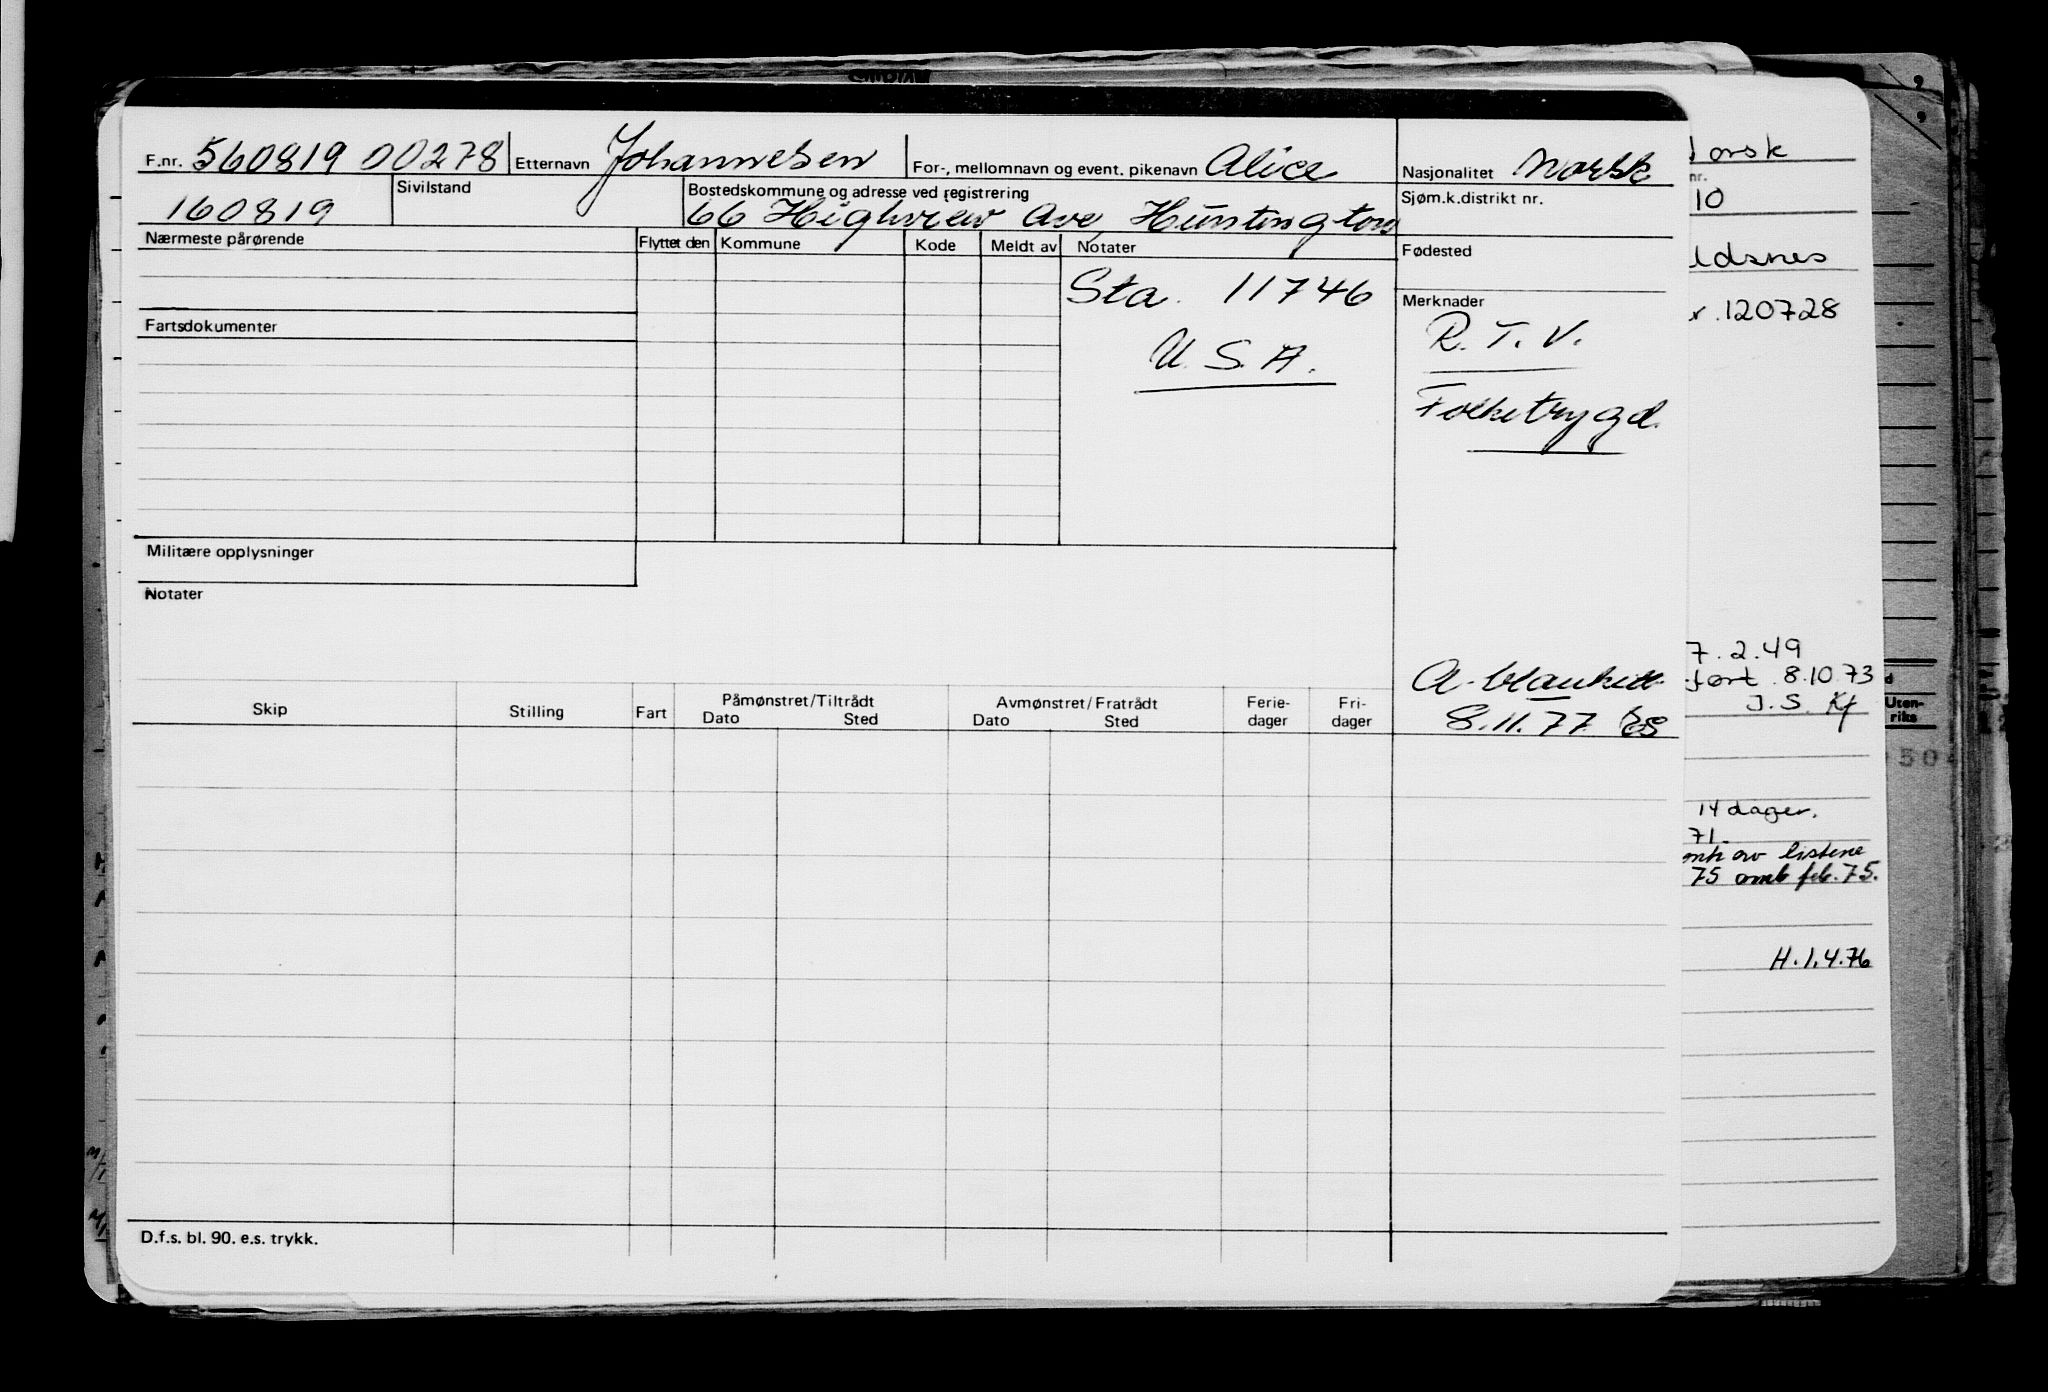 F.nr. 560819 00278 Etternavn Johannesen For-, mellomnavn og event. pikenavn Alice Nasjonalitet Norsk
160819 Sivilstand Bostedskommune og adresse ved registrering Sjøm.k.distrikt nr.
66 Highview Ave, Huntington
Nærmeste pårørende Flyttet den Kommune Kode Meldt av Notater Fødested
Sta. 11746
Merknader
Fartsdokumenter
R. T. V.
U. S. A.
Folketrygd.
Militære opplysninger
Notater
A-blankett
8.11.77
Skip Stilling Fart Påmønstret/Tiltrådt Avmønstret/Fratrådt Ferie- Fri-
Dato Sted Dato Sted dager dager
D.f.s. bl. 90. e.s. trykk.
orsk
nr.
10
ldsnes
120728
7.2.49
ført 8.10.73
J.S. Kf
Uten-
riks
50
14 dager.
71.
av listene
75 omb feb. 75.
H.1.4.76